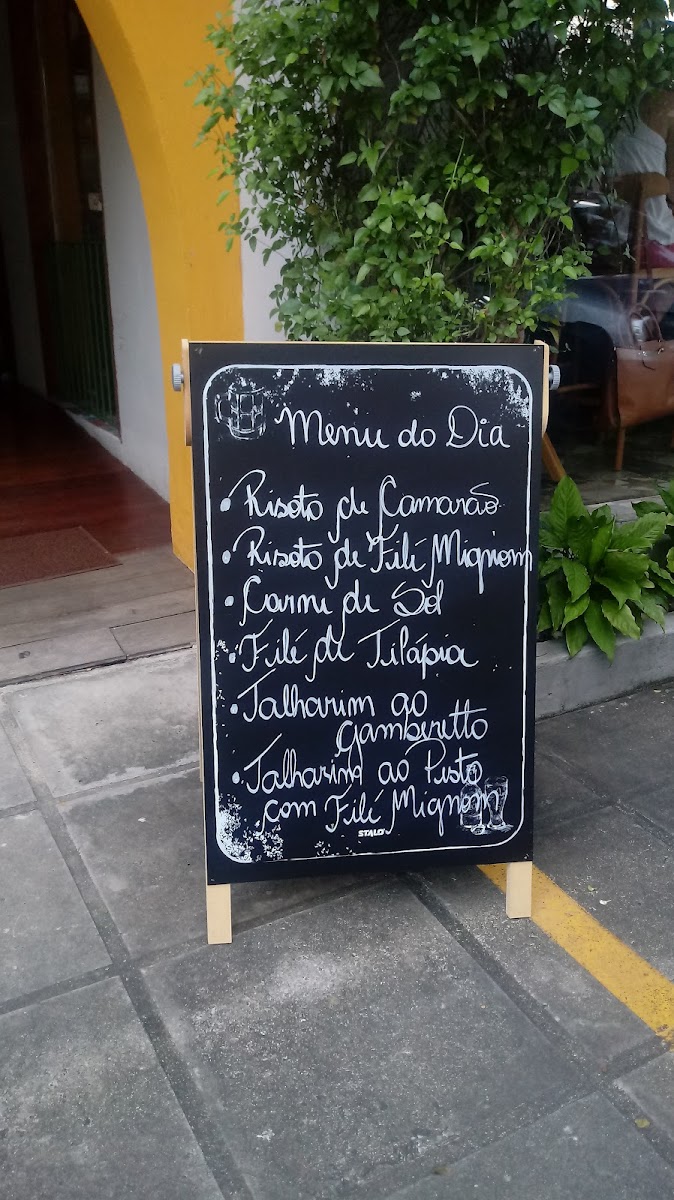 Menu do Dia
• Risoto de Camarão
• Risoto de Filé Mignom
• Carne de Sol
• Filé de Tilápia
• Talharim ao
gamberetto
• Talharim ao Pesto
com Filé Mignom
STALO